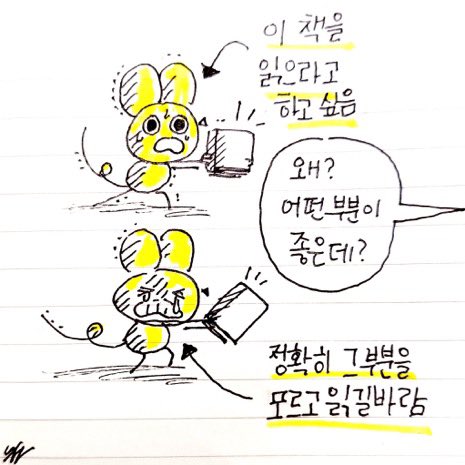 이 책을
읽으라고
하고 싶음
왜?
어떤 부분이
좋은데?
정확히 그 부분을
모르고 읽길바람